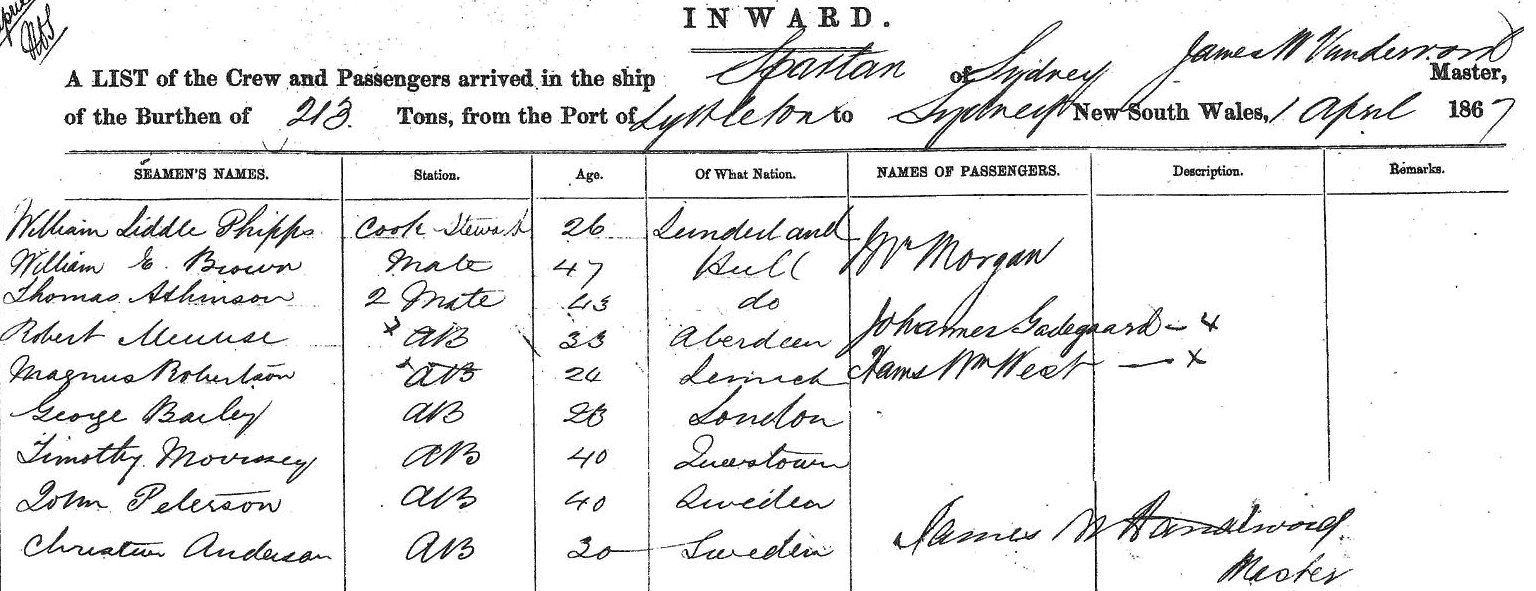 INWARD.
A LIST of the Crew and Passengers arrived in the ship Spartan of Sydney James W Master,
of the Burthen of 213. Tons, from the Port of Lyttleton to Sydney New South Wales, 1 April 1867
SEAMEN'S NAMES. Station. Age. Of What Nation. NAMES OF PASSENGERS. Description. Remarks.
William Liddle Phipps Cook Steward 26 Sunderland Mr Morgan
William E. Brown Mate 47 Hull
Thomas Atkinson 2 Mate 43 do
Robert x AB 33 Aberdeen Johannes Godegaard - x
Magnus Robertson x AB 24 Hans Wm West — x
George Bailey AB 28 London
Timothy Morrissey AB 40 Queenstown
John Peterson AB 40 Sweden
Christian Anderson AB 30 Sweden James W
Master